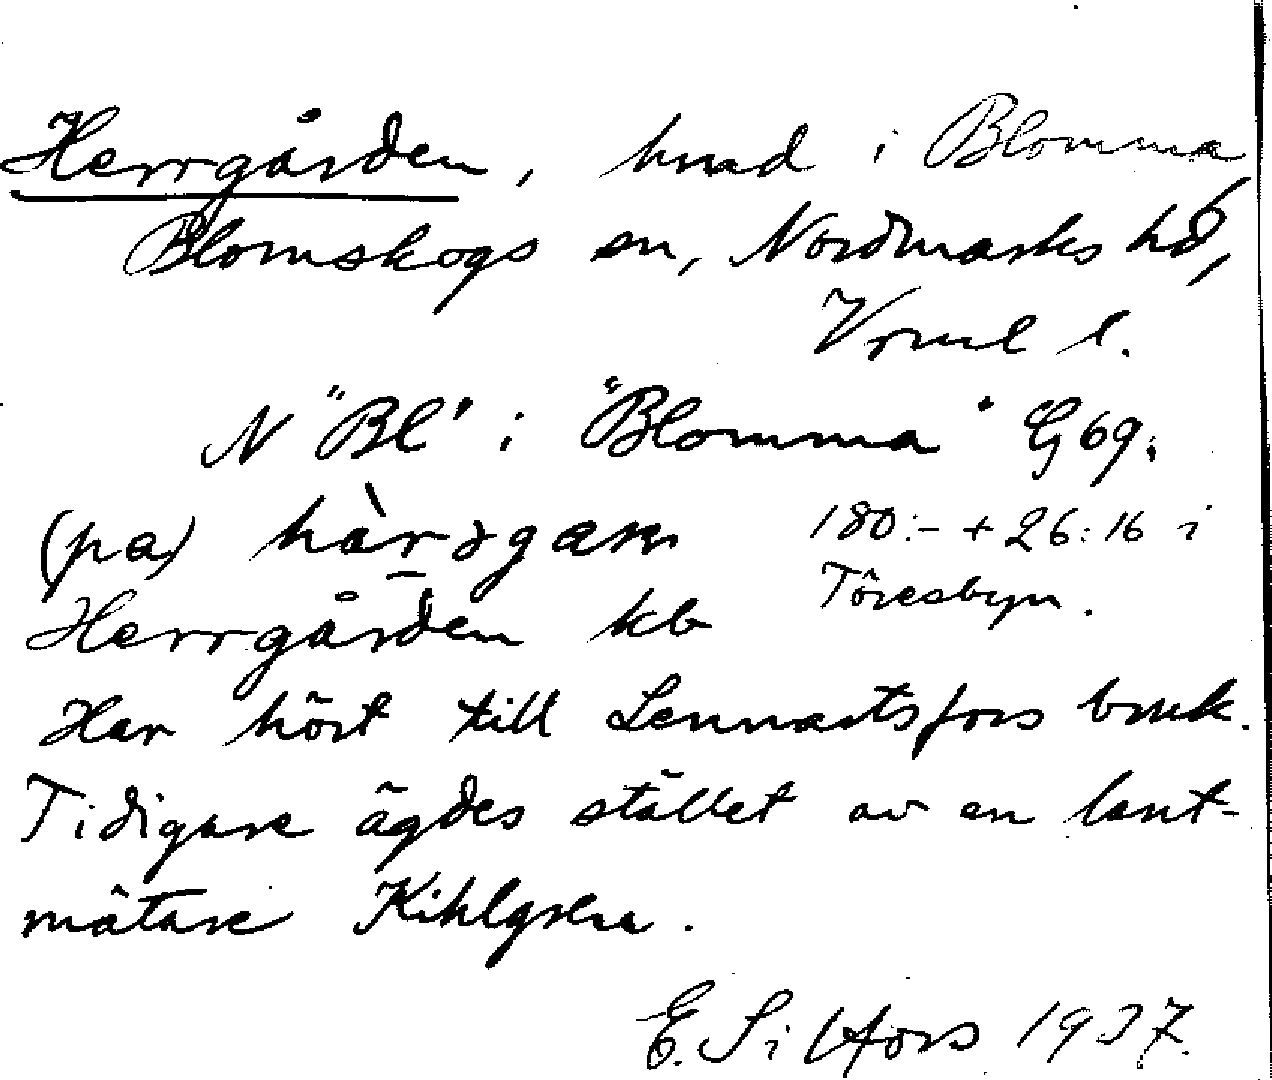 Herrgården, hmd i Blomma,
Blomskogs sn, Nordmarks hd,
Vrml l.
N "Bl" i "Blomma" G 69.
(pa)
180:- + 26:16 i
Töresbyn.
Herrgården kb
Har hört till Lennartsfors bruk.
Tidigare ägdes stället av en lant-
mätare Kihlgren.
E. Silfors 1937.